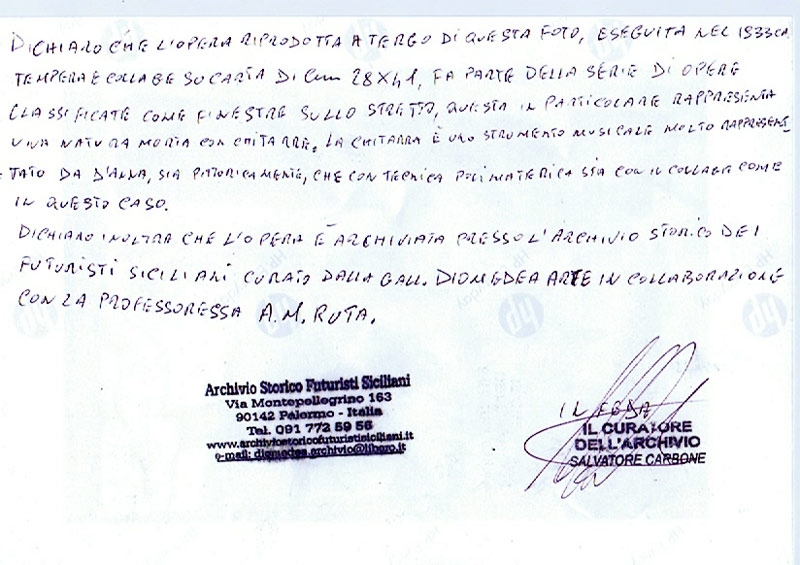 DICHIARO CHE L'OPERA RIPRODOTTA A TERGO DI QUESTA FOTO, ESEGUITA NEL 1933 CA.
TEMPERA E COLLAGE SU CARTA DI Cm 28X41, FA PARTE DELLA SERIE DI OPERE
CLASSIFICATE COME FINESTRE SULLO STRETTO, QUESTA IN PARTICOLARE RAPPRESENTA
UNA NATURA MORTA CON CHITARRE. LA CHITARRA È UNO STRUMENTO MUSICALE MOLTO RAPPRESEN
TATO DA D'ANNA, SIA PITTORICAMENTE, CHE CON TECNICA POLIMATERICA SIA CON IL COLLAGE COME
IN QUESTO CASO.
DICHIARO INOLTRA CHE L'OPERA È ARCHIVIATA PRESSO L'ARCHIVIO STORICO DEI
FUTURISTI SICILIANI CURATO DALLA GALL. DIOMEDEA ARTE IN COLLABORAZIONE
CON LA PROFESSORESSA A.M. RUTA.
Archivio Storico Futuristi Siciliani
Via Montepellegrino 163
90142 Palermo - Italia
Tel. 091 772 59 56
www.archiviostoricofuturistisiciliani.it
e-mail: diomedea.archivio@libero.it
IN FEDE
IL CURATORE
DELL'ARCHIVIO
SALVATORE CARBONE